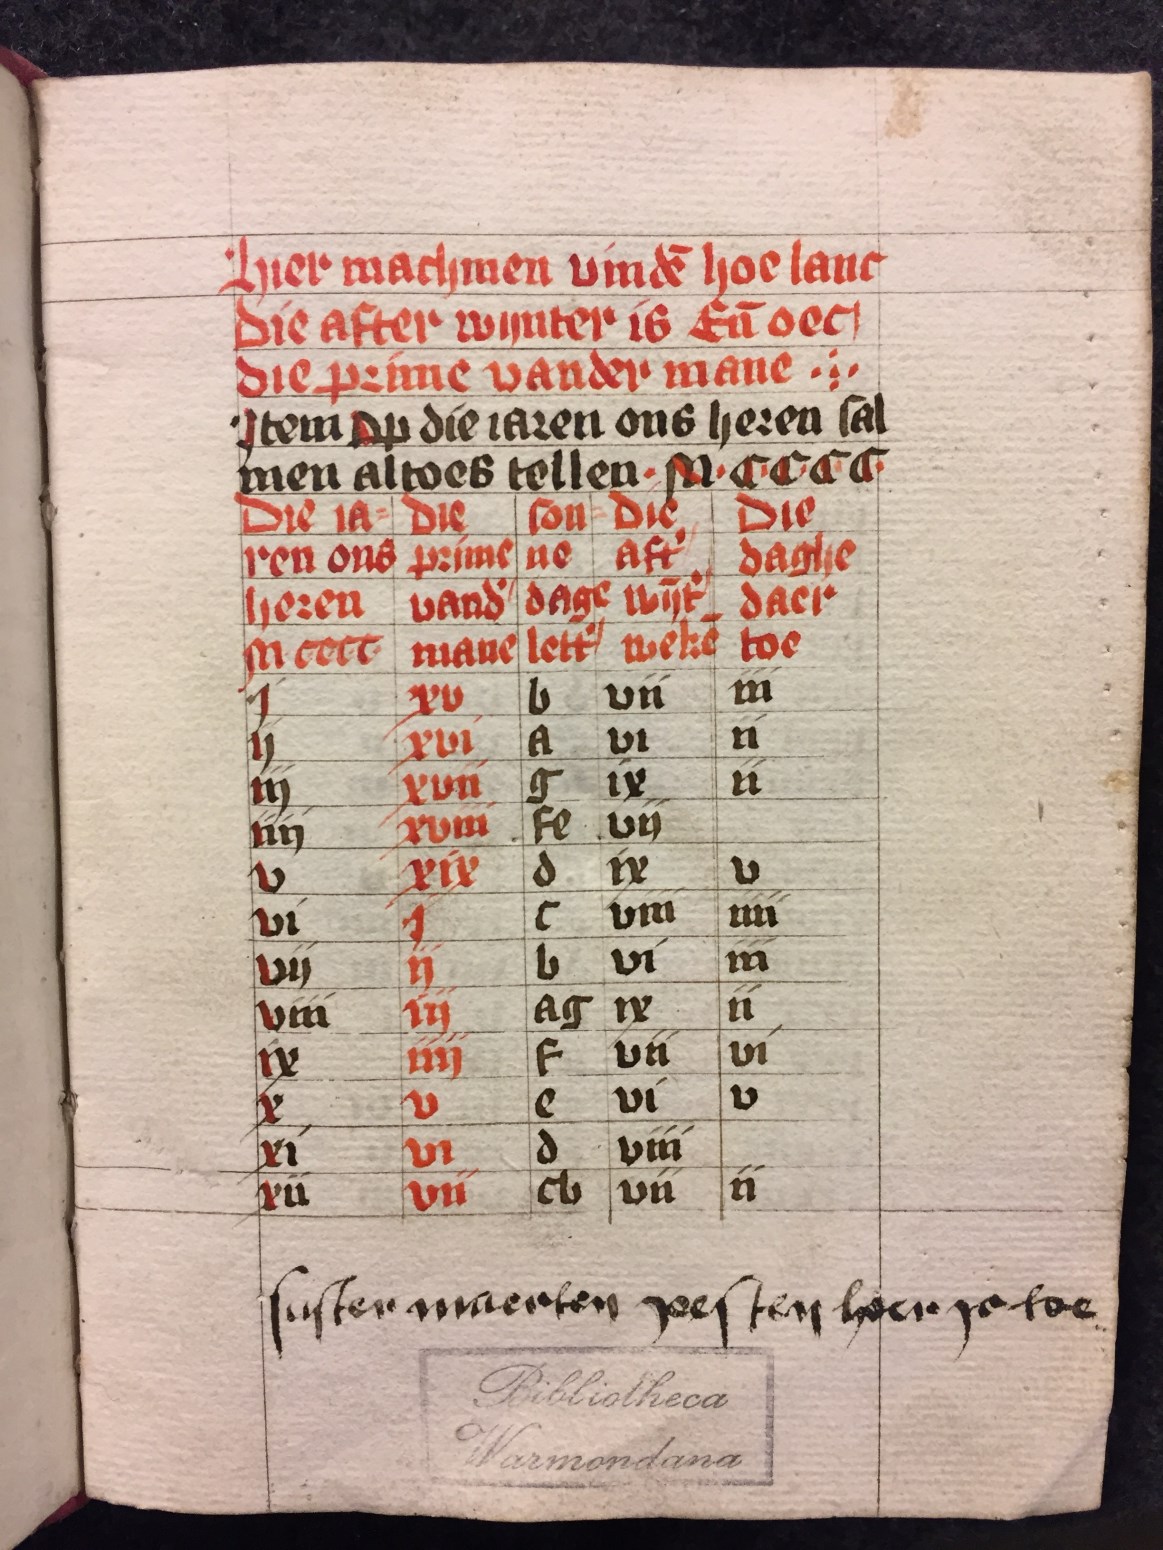 hier machmen vindē hoe lanc
die after wijnter is Eñ oec
die prime vander mane
Item Op die iaren ons heren sal
men altoes tellen · M · C C C C
Die ia= Die son= Die Die
ren ons prime ne aft' daghe
heren vand' dage wijt' daer
M cccc mane lett' wekē toe
j xv b vii iii
ij xvi A vi ii
iij xvii g ix ii
iiij xviii fe vij
v xix d ix v
vi j c viii iiii
vij ij b vi iii
viii iij Ag ix ii
ix iiij f vii vi
x v e vi v
xi vi d viii
xii vii cb vii ii
suster maerten hoer toe
Bibliotheca
Warmondana